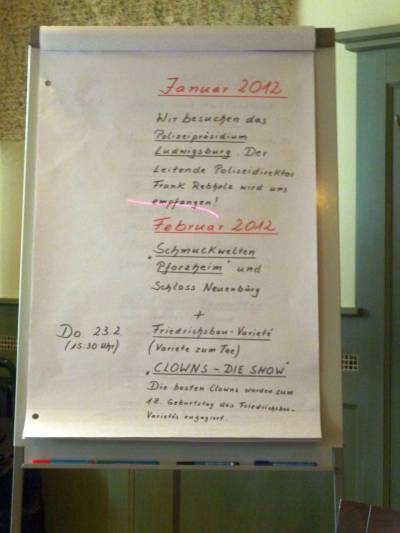 Januar 2012
Wir besuchen das
Polizeipräsidium
Ludwigsburg. Der
Leitende Polizeidirektor
Frank Rebholz wird uns
empfangen!
Februar 2012
"Schmuckwelten
Pforzheim" und
Schloss Neuenbürg
+
Do. 23.2. Friedrichsbau-Varieté
(15:30 Uhr) (Variete zum Tee)
„CLOWNS - DIE SHOW"
Die besten Clowns wurden zum
18. Geburtstag des Friedrichsbau-
Varietés engagiert.